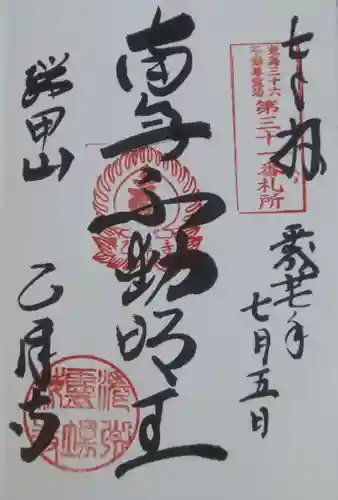 奉拝
東海三十六
不動尊霊場
第三十一番札所
平成廿七年
七月五日
南無不動明王
瑞甲山
乙月寺